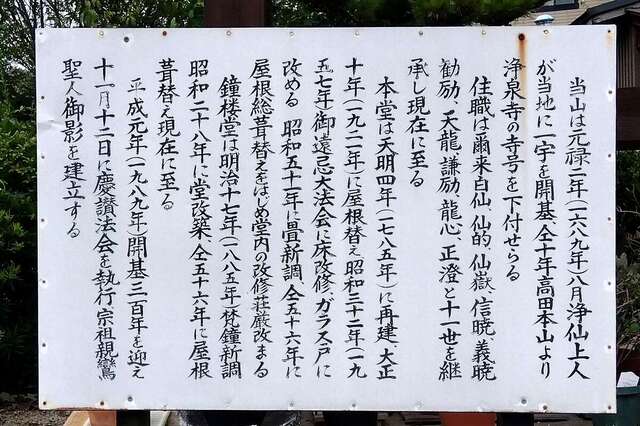 当山は元禄二年(一六八九年)八月浄仙上人
が当地に一宇を開基、仝十年高田本山より
浄泉寺の寺号を下付せらる
住職は爾来白仙、仙的、仙嶽、信暁、義暁
勧励、天龍、謙励、龍心、正澄と十一世を継
承し現在に至る
本堂は天明四年(一七八五年)に再建、大正
十年(一九二一年)に屋根替え昭和三十二年(一九
五七年)御遠忌大法会に床改修、ガラス戸に
改める 昭和五十一年に畳新調、仝五十六年に
屋根総葺替えをはじめ堂内の改修荘厳改まる
鐘楼堂は明治十七年(一八八五年)梵鐘新調
昭和二十八年に堂改築、仝五十六年に屋根
葺替え現在に至る
平成元年(一九八九年)開基三百年を迎え
十一月十二日に慶讃法会を執行宗祖親鸞
聖人御影を建立する